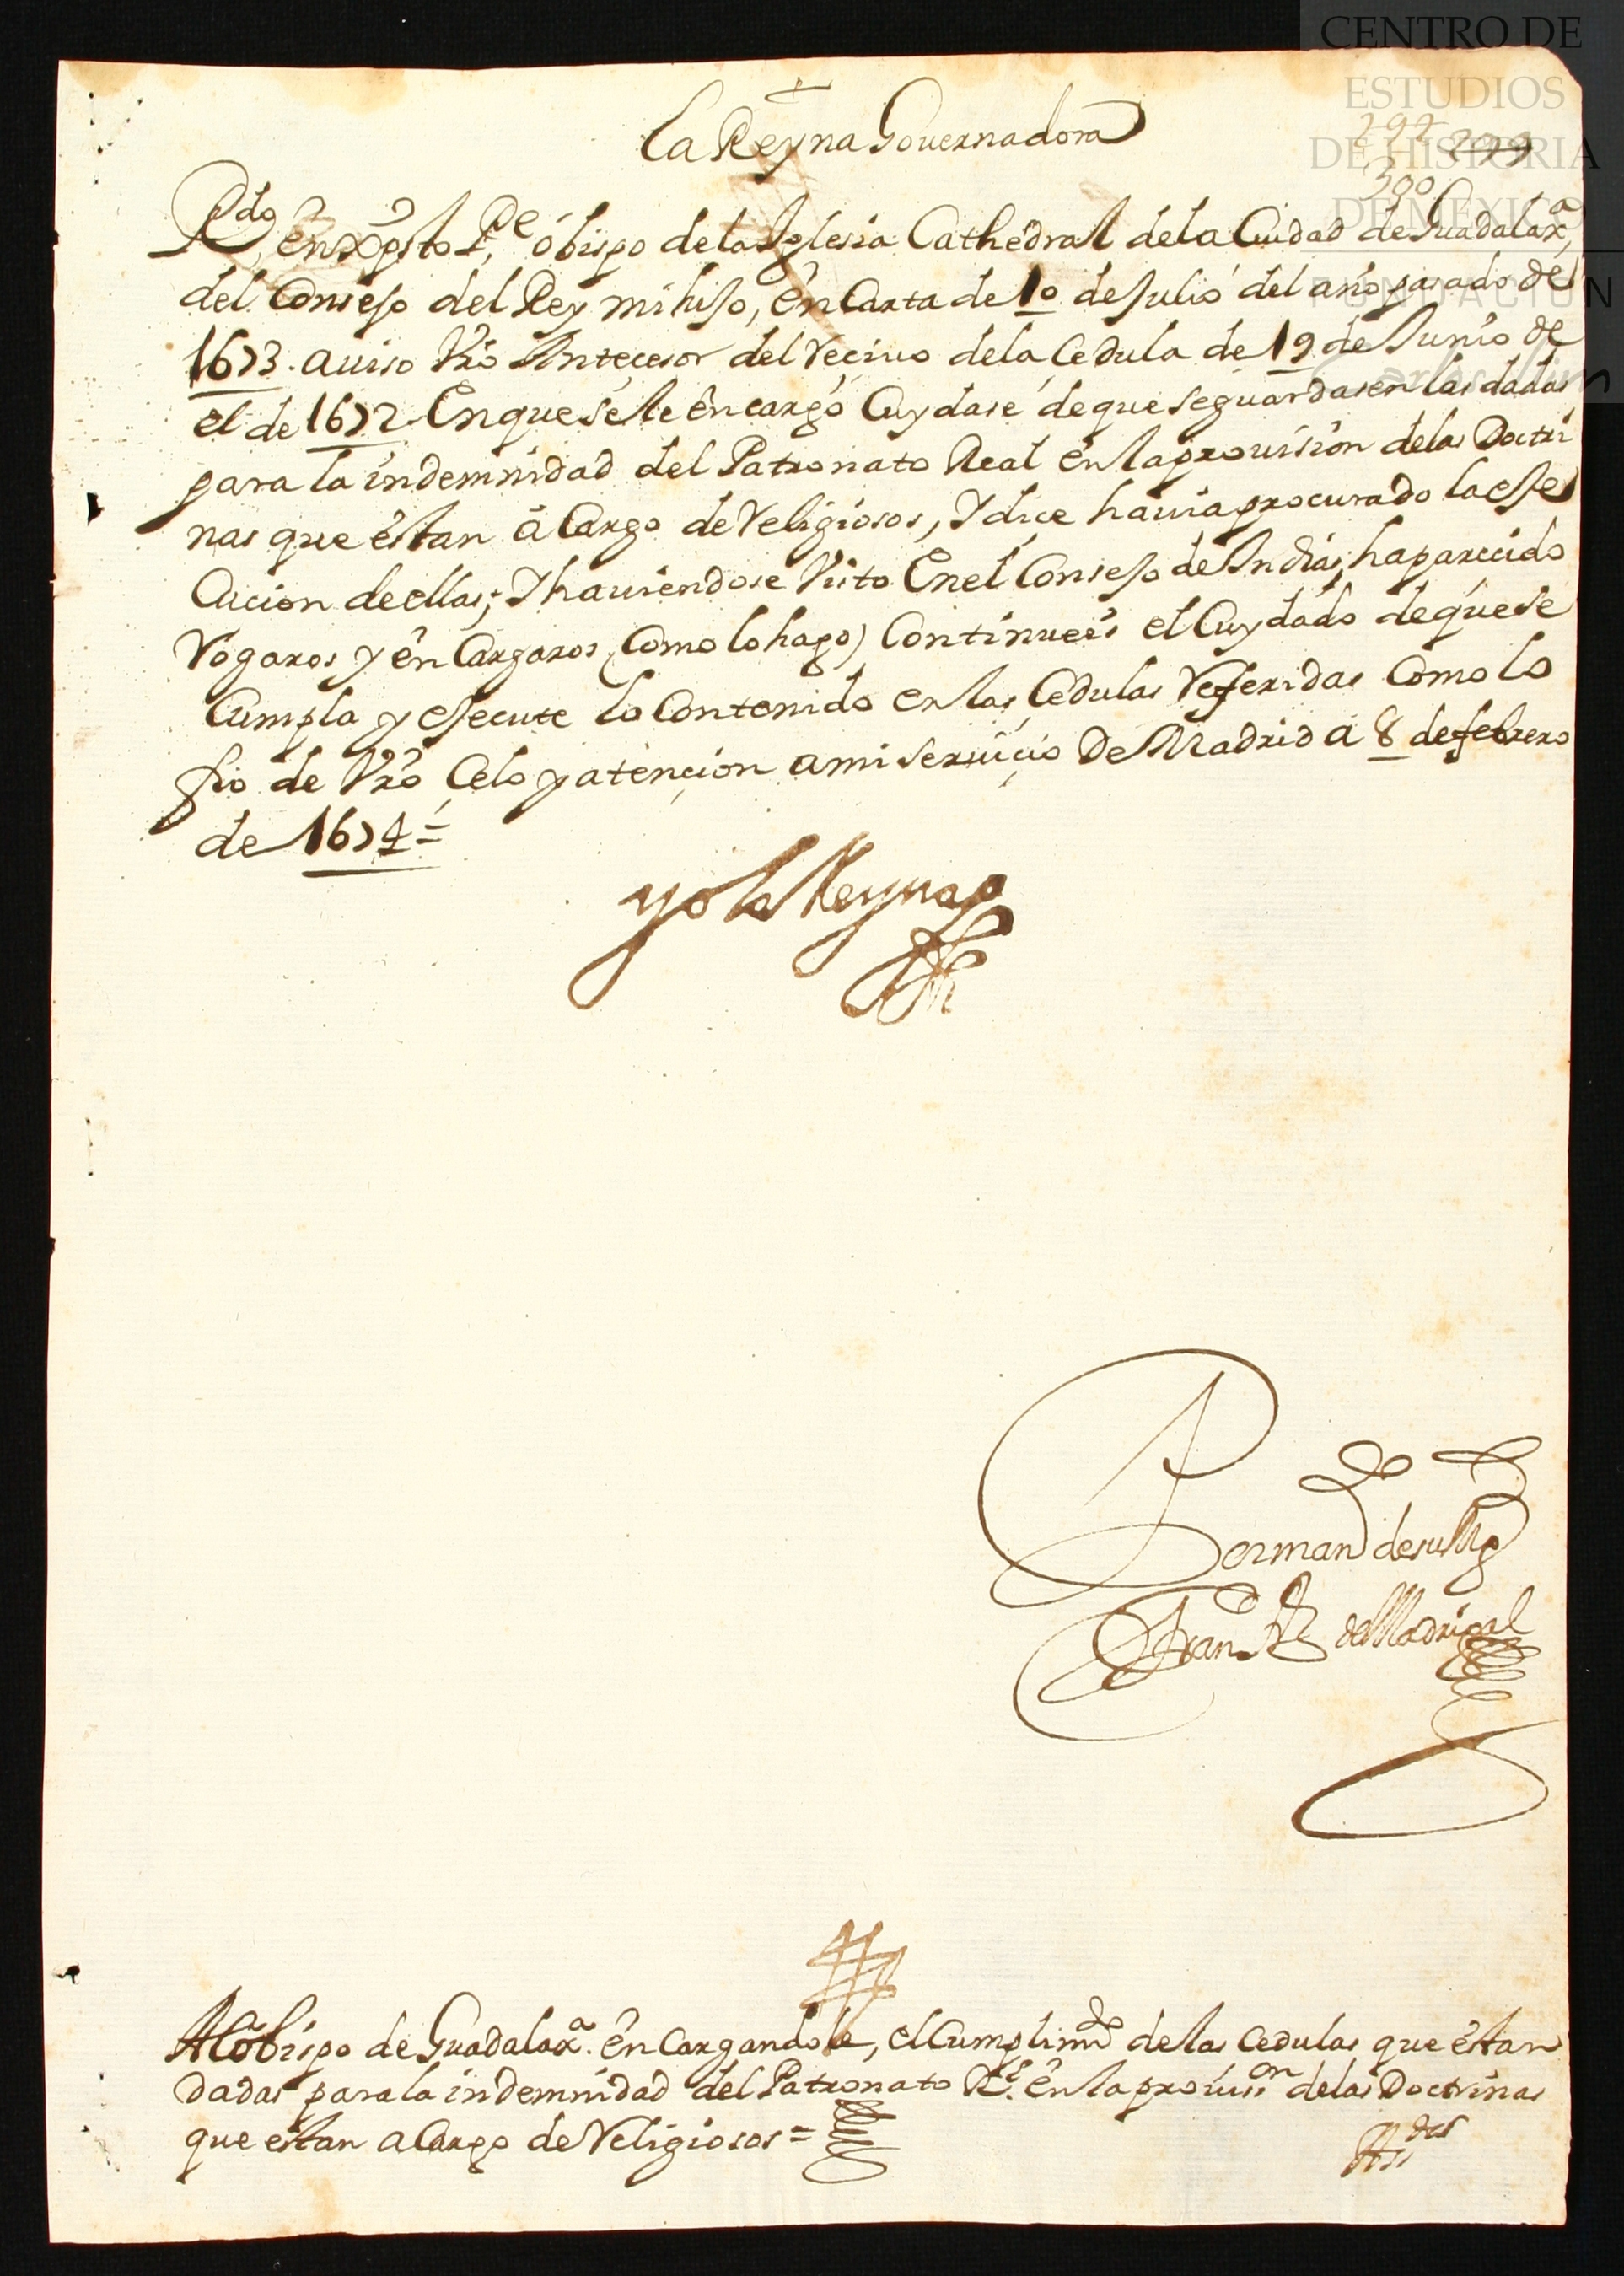 CENTRO DE
ESTUDIOS
DE HISTORIA
DE MÉXICO
FUNDACIÓN
Carlos Slim
La Reyna Gouernadora
297 299
300
Rdo. en Xpsto Pe. obispo de la Iglesia Cathedral de la Ciudad de Guadalaxa,
del Consejo del Rey mi hijo, en Carta de 10 de Julio del año pasado de
1673. auiso Vro Antecesor del reciuo de la Cedula de 19 de Junio de
el de 1672. En que se le encargó Cuydase de que se guardasen las dadas
para la indemnidad del Patronato Real en la prouision de las Doctri
nas que estan a Cargo de religiosos, Y dice hauia procurado la eje
Cucion de ellas; Y hauiendose Visto En el Consejo de Indias, ha parecido
rogaros y encargaros (Como lo hago) Continueis el Cuydado de que se
Cumpla y ejecute lo Contenido en las Cedulas referidas Como lo
fio de Vro Celo y atencion a mi seruicio De Madrid a 8 de febrero
de 1674=
Yo la Reyna
Por mando de su Mgd
Franco Frz de Madrigal
Al obispo de Guadalaxa. encargandole, el Cumplimto de las Cedulas que estan
dadas para la indemnidad del Patronato Rl. en la prouision de las Doctrinas
que estan a Cargo de Religiosos=